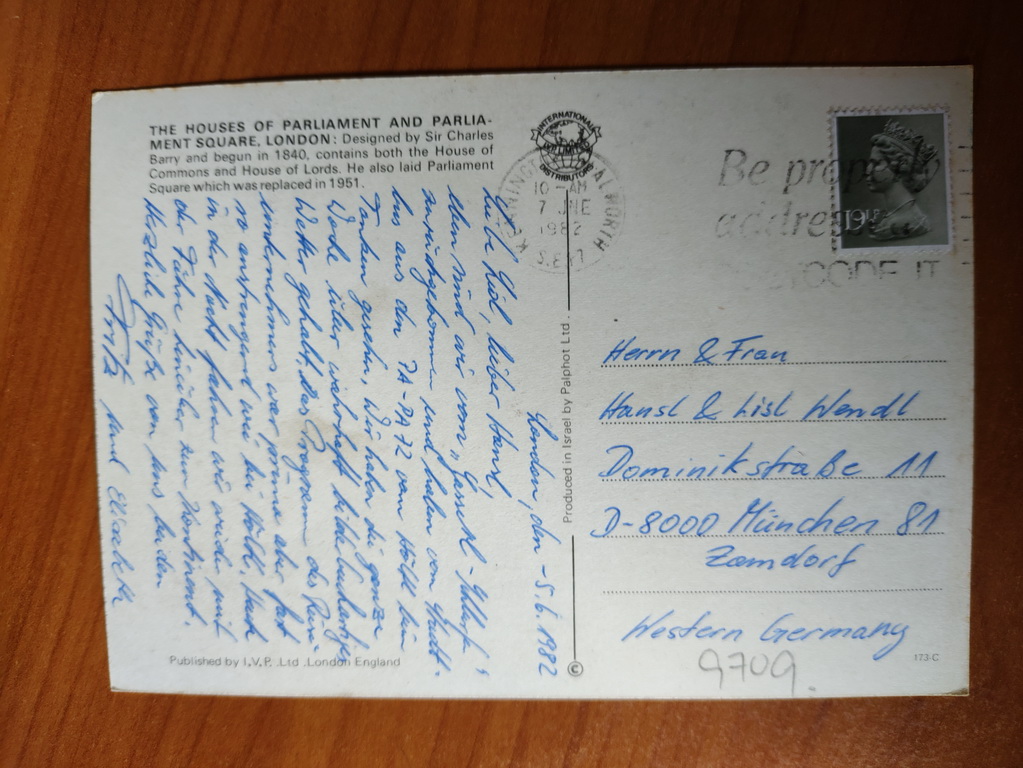 THE HOUSES OF PARLIAMENT AND PARLIA-
MENT SQUARE, LONDON: Designed by Sir Charles
Barry and begun in 1840, contains both the House of
Commons and House of Lords. He also laid Parliament
Square which was replaced in 1951.
INTERNATIONAL
DISTRIBUTORS
10 - AM
7 JNE
1982
S.E.17
Be prop
address
POSTCODE IT
19P
London, den - 5.6.1982
Liebe Lisl, lieber Hansl,
eben sind wir vom
zurückgekommen und haben von
bus aus den
Tinken gesehen. Wir haben die ganze
Woche über wahrhaft
Wetter gehabt. Das Programm des Reise-
unternehmens war prima aber fast
so anstrengend wie bei Höltl. Heute
in der Nacht fahren wir wieder mit
der Fähre hinüber zum Kontinent.
Herzliche Grüße von uns beiden
Fritz und Elisabeth
Produced in Israel by Palphot Ltd.
©
Herrn & Frau
Hansl & Lisl Wendl
Dominikstraße 11
D-8000 München 81
Zamdorf
Western Germany
9709.
173-C
Published by I.V.P. Ltd. London England